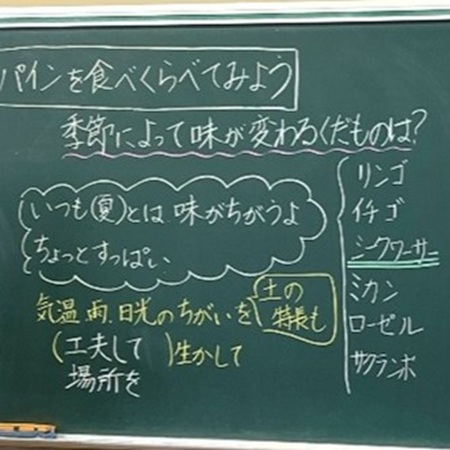 パインを食べくらべてみよう
季節によって味が変わるくだものは?
いつも(夏)とは味がちがうよ
ちょっとすっぱい
気温、雨、日光のちがいを
土の
特長も
(工夫して)生かして
場所を
リンゴ
イチゴ
シークワーサー
ミカン
ローゼル
サクランボ